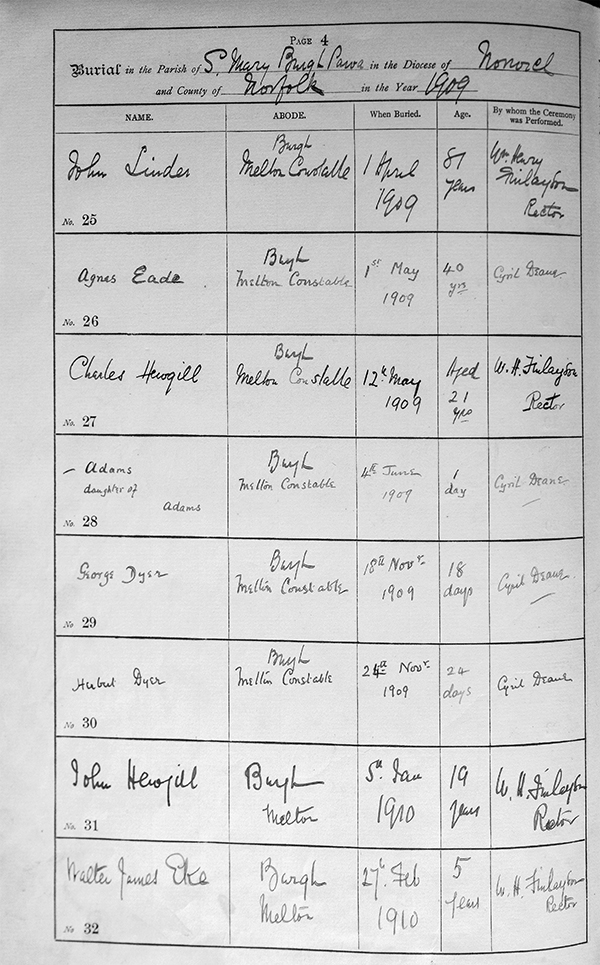 PAGE 4
Burial in the Parish of S. Mary Burgh Parva in the Diocese of Norwich
and County of Norfolk in the Year 1909
NAME. ABODE. When Buried. Age. By whom the Ceremony was Performed.
John Linder
No. 25
Burgh
Melton Constable
1 April
1909
81
years
Wm. Henry
Finlayson
Rector
Agnes Eade
No. 26
Burgh
Melton Constable
1st May
1909
40
yrs
Cyril Deane
Charles Hewgill
No. 27
Burgh
Melton Constable
12th May
1909
Aged
21
yrs
W. H. Finlayson
Rector
— Adams
daughter of
Adams
No. 28
Burgh
Melton Constable
4th June
1909
1
day
Cyril Deane
George Dyer
No. 29
Burgh
Melton Constable
18th Novr.
1909
18
days
Cyril Deane
Herbert Dyer
No. 30
Burgh
Melton Constable
24th Novr.
1909
24
days
Cyril Deane
John Hewgill
No. 31
Burgh
Melton
5th Jan
1910
19
years
W. H. Finlayson
Rector
Walter James Eke
No. 32
Burgh
Melton
27th. Feb
1910
5
years
W. H. Finlayson
Rector